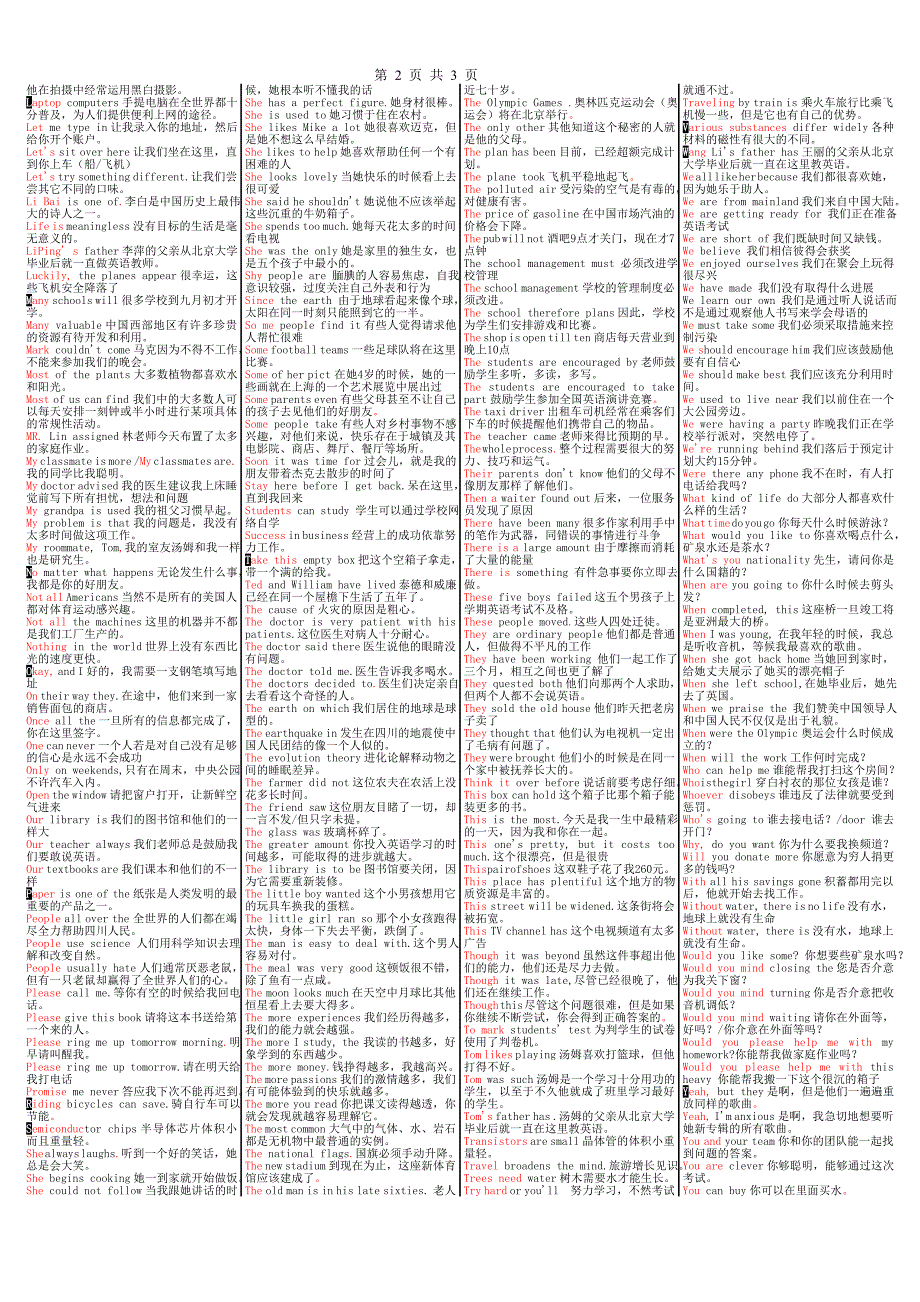 第 2 页 共 3 页
他在拍摄中经常运用黑白摄影。
Laptop computers 手提电脑在全世界都十
分普及，为人们提供便利上网的途径。
Let me type in 让我录入你的地址，然后
给你开个账户。
Let's sit over here 让我们坐在这里，直
到你上车（船/飞机）
Let's try something different.让我们尝
尝其它不同的口味。
Li Bai is one of.李白是中国历史上最伟
大的诗人之一。
Life is meaningless 没有目标的生活是毫
无意义的。
LiPing' s father 李萍的父亲从北京大学
毕业后就一直做英语教师。
Luckily, the planes appear 很幸运，这
些飞机安全降落了
Many schools will 很多学校到九月初才开
学。
Many valuable 中国西部地区有许多珍贵
的资源有待开发和利用。
Mark couldn't come 马克因为不得不工作，
不能来参加我们的晚会。
Most of the plants 大多数植物都喜欢水
和阳光。
Most of us can find 我们中的大多数人可
以每天安排一刻钟或半小时进行某项具体
的常规性活动。
MR. Lin assigned 林老师今天布置了太多
的家庭作业。
My classmate is more /My classmates are.
我的同学比我聪明。
My doctor advised 我的医生建议我上床睡
觉前写下所有担忧，想法和问题
My grandpa is used 我的祖父习惯早起。
My problem is that 我的问题是，我没有
太多时间做这项工作。
My roommate, Tom,我的室友汤姆和我一样
也是研究生。
No matter what happens 无论发生什么事，
我都是你的好朋友。
Not all Americans 当然不是所有的美国人
都对体育运动感兴趣。
Not all the machines 这里的机器并不都
是我们工厂生产的。
Nothing in the world 世界上没有东西比
光的速度更快。
Okay, and I 好的，我需要一支钢笔填写地
址
On their way they.在途中，他们来到一家
销售面包的商店。
Once all the 一旦所有的信息都完成了，
你在这里签字。
One can never 一个人若是对自己没有足够
的信心是永远不会成功
Only on weekends,只有在周末，中央公园
不许汽车入内。
Open the window 请把窗户打开，让新鲜空
气进来
Our library is 我们的图书馆和他们的一
样大
Our teacher always 我们老师总是鼓励我
们要敢说英语。
Our textbooks are 我们课本和他们的不一
样
Paper is one of the 纸张是人类发明的最
重要的产品之一。
People all over the 全世界的人们都在竭
尽全力帮助四川人民。
People use science 人们用科学知识去理
解和改变自然。
People usually hate 人们通常厌恶老鼠，
但有一只老鼠却赢得了全世界人们的心。
Please call me.等你有空的时候给我回电
话。
Please give this book 请将这本书送给第
一个来的人。
Please ring me up tomorrow morning.明
早请叫醒我。
Please ring me up tomorrow.请在明天给
我打电话
Promise me never 答应我下次不能再迟到.
Riding bicycles can save.骑自行车可以
节能。
Semiconductor chips 半导体芯片体积小
而且重量轻。
She always laughs.听到一个好的笑话，她
总是会大笑。
She begins cooking 她一到家就开始做饭。
She could not follow 当我跟她讲话的时
候，她根本听不懂我的话
She has a perfect figure.她身材很棒。
She is used to 她习惯于住在农村。
She likes Mike a lot 她很喜欢迈克，但
是她不想这么早结婚。
She likes to help 她喜欢帮助任何一个有
困难的人
She looks lovely 当她快乐的时候看上去
很可爱
She said he shouldn't 她说他不应该举起
这些沉重的牛奶箱子。
She spends too much.她每天花太多的时间
看电视
She was the only 她是家里的独生女，也
是五个孩子中最小的。
Shy people are 腼腆的人容易焦虑，自我
意识较强，过度关注自己外表和行为
Since the earth 由于地球看起来像个球，
太阳在同一时刻只能照到它的一半。
So me people find it 有些人觉得请求他
人帮忙很难
Some football teams 一些足球队将在这里
比赛。
Some of her pict 在她4岁的时候，她的一
些画就在上海的一个艺术展览中展出过
Some parents even 有些父母甚至不让自己
的孩子去见他们的好朋友。
Some people take 有些人对乡村事物不感
兴趣，对他们来说，快乐存在于城镇及其
电影院、商店、舞厅、餐厅等场所。
Soon it was time for 过会儿，就是我的
朋友带着杰克去散步的时间了
Stay here before I get back.呆在这里，
直到我回来
Students can study 学生可以通过学校网
络自学
Success in business 经营上的成功依靠努
力工作。
Take this empty box 把这个空箱子拿走，
带一个满的给我。
Ted and William have lived 泰德和威廉
已经在同一个屋檐下生活了五年了。
The cause of 火灾的原因是粗心。
The doctor is very patient with his
patients.这位医生对病人十分耐心。
The doctor said there 医生说他的眼睛没
有问题。
The doctor told me.医生告诉我多喝水。
The doctors decided to.医生们决定亲自
去看看这个奇怪的人。
The earth on which 我们居住的地球是球
型的。
The earthquake in 发生在四川的地震使中
国人民团结的像一个人似的。
The evolution theory 进化论解释动物之
间的睡眠差异。
The farmer did not 这位农夫在农活上没
花多长时间。
The friend saw 这位朋友目睹了一切，却
一言不发/但只字未提。
The glass was 玻璃杯碎了。
The greater amount 你投入英语学习的时
间越多，可能取得的进步就越大。
The library is to be 图书馆要关闭，因
为它需要重新装修。
The little boy wanted 这个小男孩想用它
的玩具车换我的蛋糕。
The little girl ran so 那个小女孩跑得
太快，身体一下失去平衡，跌倒了。
The man is easy to deal with.这个男人
容易对付。
The meal was very good 这顿饭很不错，
除了鱼有一点咸。
The moon looks much 在天空中月球比其他
恒星看上去要大得多。
The more experiences 我们经历得越多，
我们的能力就会越强。
The more I study, the 我读的书越多，好
象学到的东西越少。
The more money.钱挣得越多，我越高兴。
The more passions 我们的激情越多，我们
有可能体验到的快乐就越多。
The more you read 你把课文读得越透，你
就会发现就越容易理解它。
The most common 大气中的气体、水、岩石
都是无机物中最普通的实例。
The national flags.国旗必须手动升降。
The new stadium 到现在为止，这座新体育
馆应该建成了。
The old man is in his late sixties. 老人
近七十岁。
The Olympic Games .奥林匹克运动会（奥
运会）将在北京举行。
The only other 其他知道这个秘密的人就
是他的父母。
The plan has been 目前，已经超额完成计
划。
The plane took 飞机平稳地起飞。
The polluted air 受污染的空气是有毒的，
对健康有害。
The price of gasoline 在中国市场汽油的
价格会下降。
The pub will not 酒吧9点才关门，现在才7
点钟
The school management must 必须改进学
校管理
The school management 学校的管理制度必
须改进。
The school therefore plans 因此，学校
为学生们安排游戏和比赛。
The shop is open till ten 商店每天营业到
晚上10点
The students are encouraged by 老师鼓
励学生多听，多读，多写。
The students are encouraged to take
part 鼓励学生参加全国英语演讲竞赛。
The taxi driver 出租车司机经常在乘客们
下车的时候提醒他们携带自己的物品。
The teacher came 老师来得比预期的早。
The whole process.整个过程需要很大的努
力、技巧和运气。
Their parents don't know 他们的父母不
像朋友那样了解他们。
Then a waiter found out 后来，一位服务
员发现了原因
There have been many 很多作家利用手中
的笔作为武器，同错误的事情进行斗争
There is a large amount 由于摩擦而消耗
了大量的能量
There is something 有件急事要你立即去
做。
These five boys failed 这五个男孩子上
学期英语考试不及格。
These people moved.这些人四处迁徒。
They are ordinary people 他们都是普通
人，但做得不平凡的工作
They have been working 他们一起工作了
三个月，相互之间也更了解了
They quested both 他们向那两个人求助，
但两个人都不会说英语。
They sold the old house 他们昨天把老房
子卖了
They thought that 他们认为电视机一定出
了毛病有问题了。
They were brought 他们小的时候是在同一
个家中被抚养长大的。
Think it over before 说话前要考虑仔细。
This box can hold 这个箱子比那个箱子能
装更多的书。
This is the most.今天是我一生中最精彩
的一天，因为我和你在一起。
This one's pretty, but it costs too
much.这个很漂亮，但是很贵
This pair of shoes 这双鞋子花了我260元。
This place has plentiful 这个地方的物
质资源是丰富的。
This street will be widened.这条街将会
被拓宽。
This TV channel has 这个电视频道有太多
广告
Though it was beyond 虽然这件事超出他
们的能力，他们还是尽力去做。
Though it was late,尽管已经很晚了，他
们还在继续工作。
Though this 尽管这个问题很难，但是如果
你继续不断尝试，你会得到正确答案的。
To mark students' test 为判学生的试卷
使用了判卷机。
Tom likes playing 汤姆喜欢打篮球，但他
打得不好。
Tom was such 汤姆是一个学习十分用功的
学生，以至于不久他就成了班里学习最好
的学生。
Tom's father has .汤姆的父亲从北京大学
毕业后就一直在这里教英语。
Transistors are small 晶体管的体积小重
量轻。
Travel broadens the mind.旅游增长见识。
Trees need water 树木需要水才能生长。
Try hard or you'll 努力学习，不然考试
就通不过。
Traveling by train is 乘火车旅行比乘飞
机慢一些，但是它也有自己的优势。
Various substances differ widely 各种
材料的磁性有很大的不同。
Wang Li's father has 王丽的父亲从北京
大学毕业后就一直在这里教英语。
We all like her because 我们都很喜欢她，
因为她乐于助人。
We are from mainland 我们来自中国大陆。
We are getting ready for 我们正在准备
英语考试
We are short of 我们既缺时间又缺钱。
We believe 我们相信彼得会获奖
We enjoyed ourselves 我们在聚会上玩得
很尽兴
We have made 我们没有取得什么进展
We learn our own 我们是通过听人说话而
不是通过观察他人书写来学会母语的
We must take some 我们必须采取措施来控
制污染
We should encourage him 我们应该鼓励他
要有自信心
We should make best 我们应该充分利用时
间。
We used to live near 我们以前住在一个
大公园旁边。
We were having a party 昨晚我们正在学
校举行派对，突然电停了。
We're running behind 我们落后于预定计
划大约15分钟。
Were there any phone 我不在时，有人打
电话给我吗？
What kind of life do 大部分人都喜欢什
么样的生活？
What time do you go 你每天什么时候游泳？
What would you like to 你喜欢喝点什么，
矿泉水还是茶水？
What's you nationality 先生，请问你是
什么国籍的？
When are you going to 你什么时候去剪头
发？
When completed, this 这座桥一旦竣工将
是亚洲最大的桥。
When I was young, 在我年轻的时候，我总
是听收音机，等候我最喜欢的歌曲。
When she got back home 当她回到家时，
给她丈夫展示了她买的漂亮帽子
When she left school,在她毕业后，她先
去了英国。
When we praise the 我们赞美中国领导人
和中国人民不仅仅是出于礼貌。
When were the Olympic 奥运会什么时候成
立的？
When will the work 工作何时完成？
Who can help me 谁能帮我打扫这个房间？
Who is the girl 穿白衬衣的那位女孩是谁？
Whoever disobeys 谁违反了法律就要受到
惩罚。
Who's going to 谁去接电话？/door 谁去
开门？
Why, do you want 你为什么要我换频道？
Will you donate more 你愿意为穷人捐更
多的钱吗？
With all his savings gone 积蓄都用完以
后，他就开始去找工作。
Without water, there is no life 没有水，
地球上就没有生命
Without water, there is 没有水，地球上
就没有生命。
Would you like some? 你想要些矿泉水吗？
Would you mind closing the 您是否介意
为我关下窗？
Would you mind turning 你是否介意把收
音机调低？
Would you mind waiting 请你在外面等，
好吗？/你介意在外面等吗？
Would you please help me with my
homework?你能帮我做家庭作业吗？
Would you please help me with this
heavy 你能帮我搬一下这个很沉的箱子
Yeah, but they 是啊，但是他们一遍遍重
放同样的歌曲。
Yeah, I'm anxious 是啊，我急切地想要听
她新专辑的所有歌曲。
You and your team 你和你的团队能一起找
到问题的答案。
You are clever 你够聪明，能够通过这次
考试。
You can buy 你可以在里面买水。